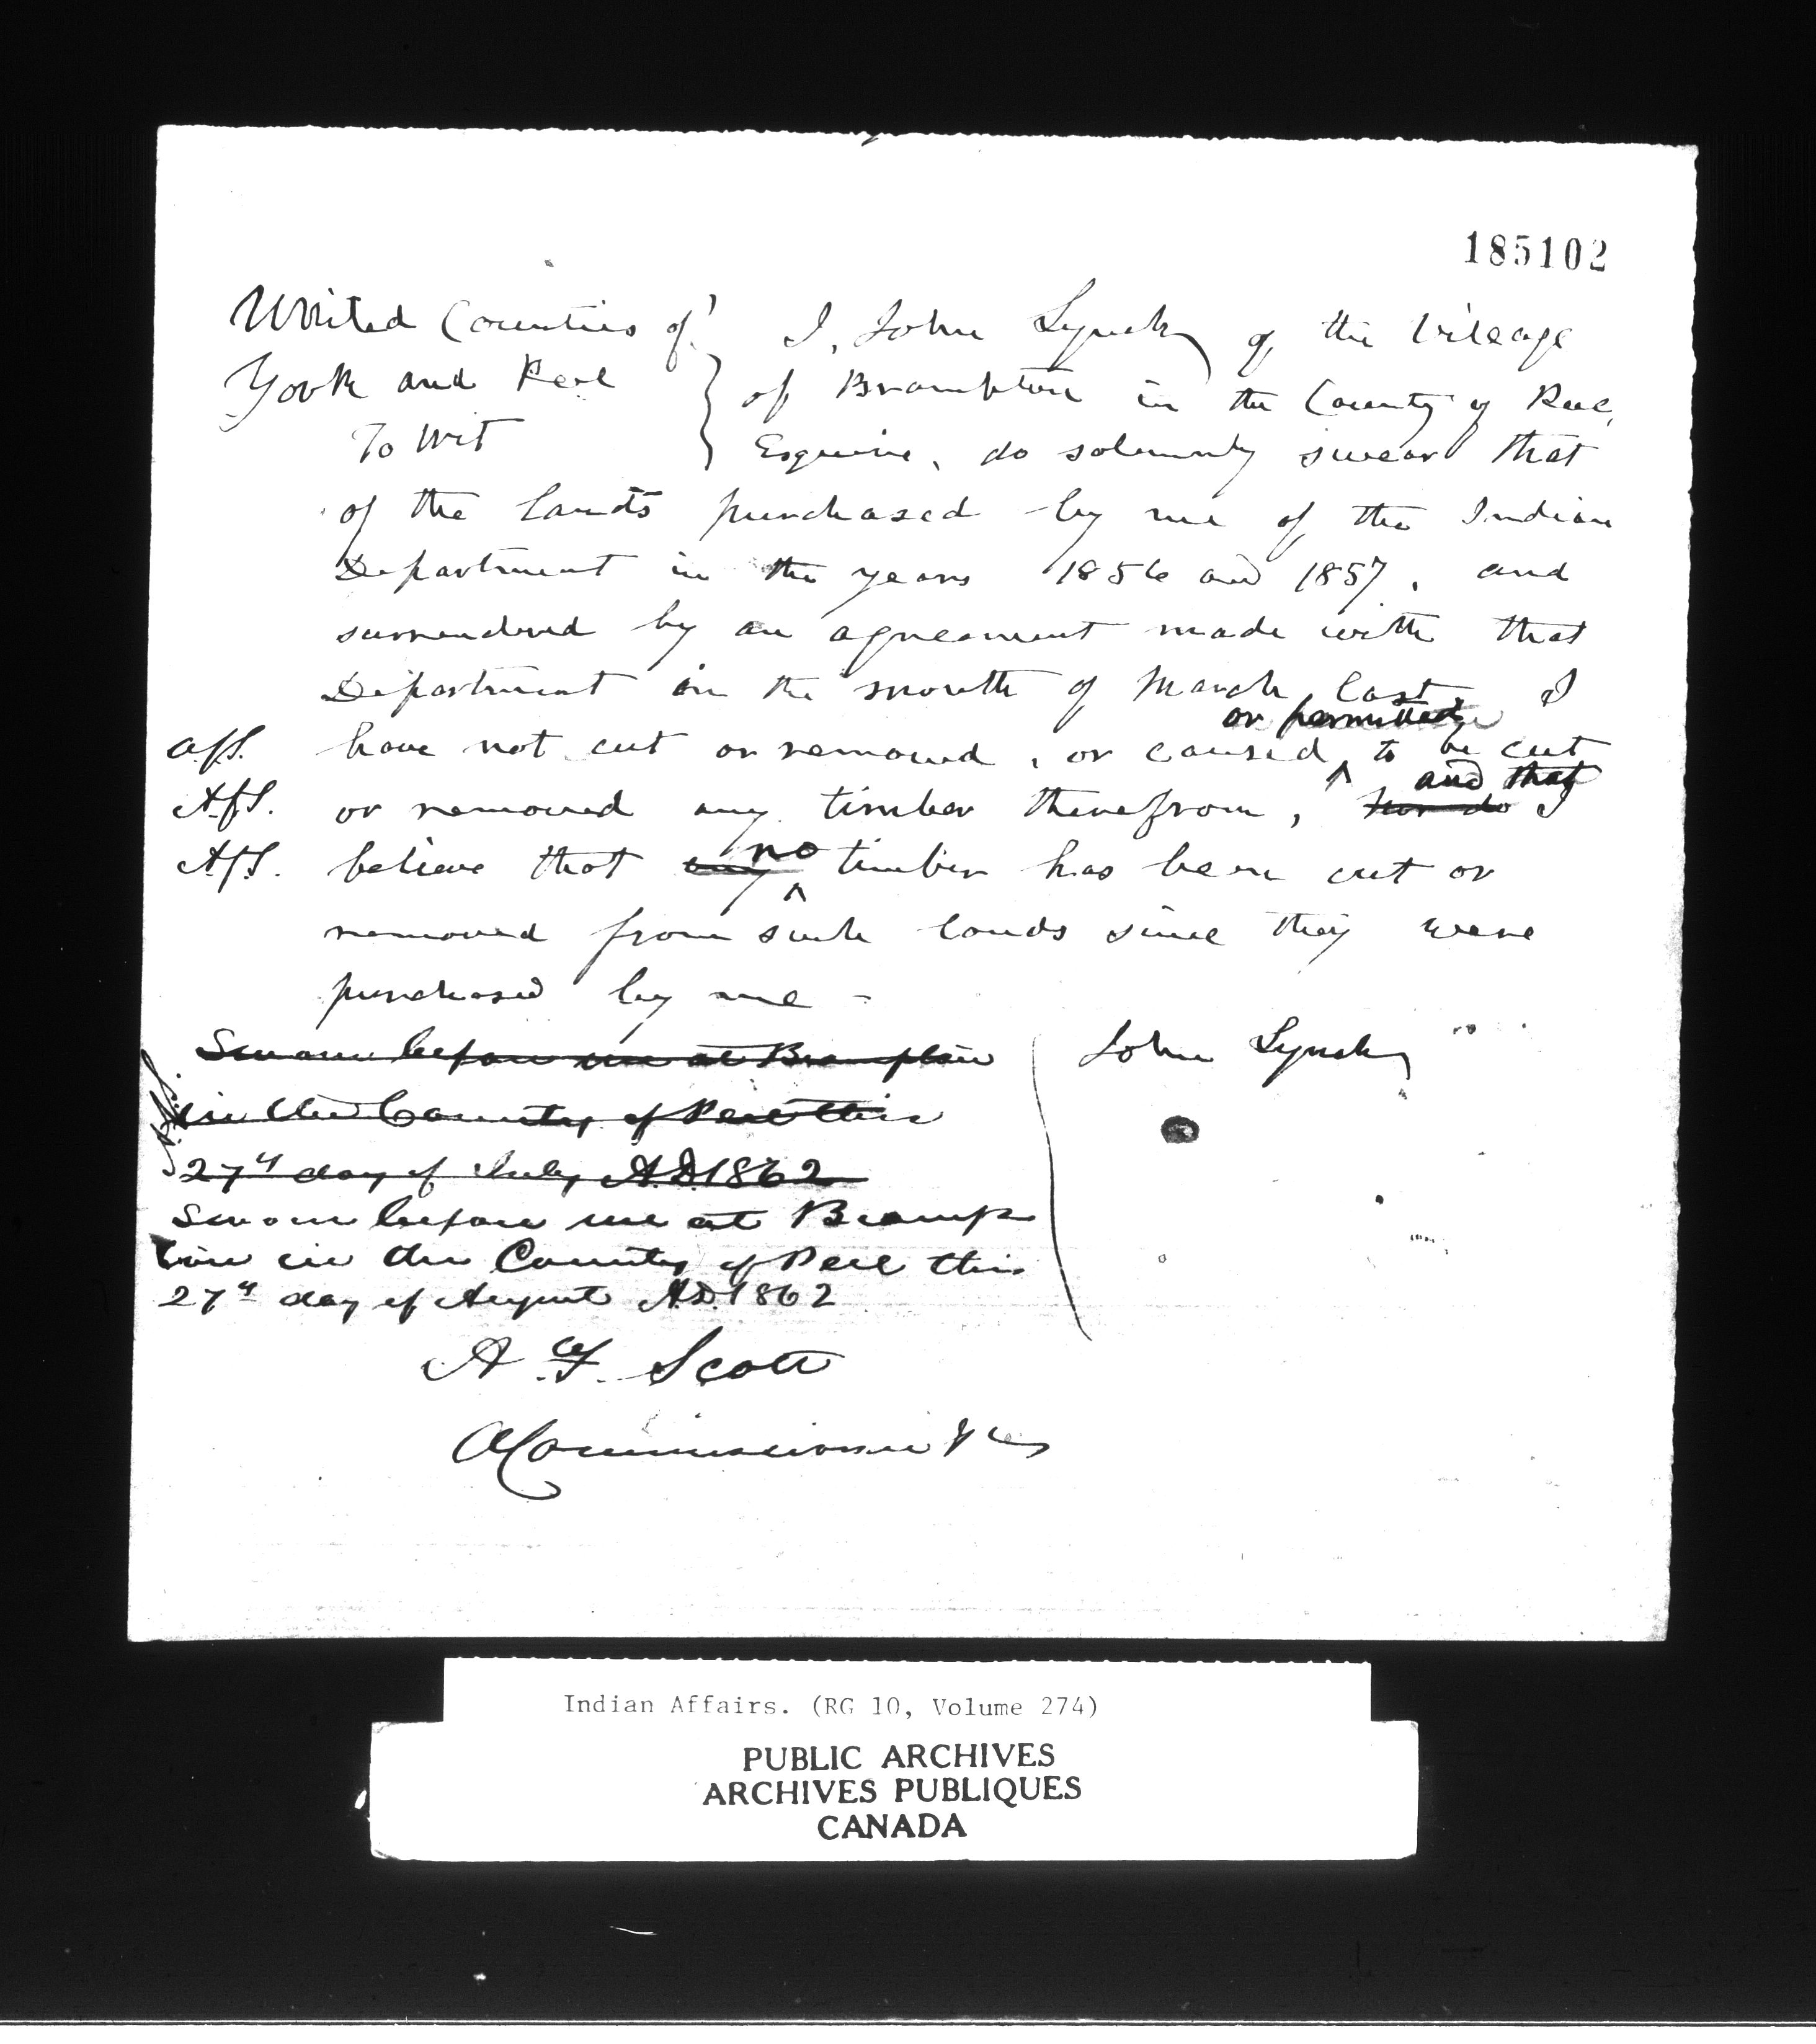 185102
United Counties of
York and Peel
To Wit
I, John Lynch of the Village
of Brampton in the County of Peel,
Esquire, do solemnly swear that
of the lands purchased by me of the Indian
Department in the years 1856 and 1857, and
surrendered by an agreement made with that
Department in the month of March last, I
or permitted
A.f.S. have not cut or removed, or caused ^ to be cut
and that
A.f.S. or removed any timber therefrom, nor do I
no
A.f.S. believe that any ^ timber has been cut or
removed from such lands since they were
purchased by me -
Sworn before me at Brampton
in the County of Peel this
27th day of July A.D. 1862
A.f.S.
John Lynch
Sworn before me at Bramp
ton in the County of Peel this
27th day of August A.D. 1862
A. F. Scott
A Commissioner &c
Indian Affairs. (RG 10, Volume 274)
PUBLIC ARCHIVES
ARCHIVES PUBLIQUES
CANADA